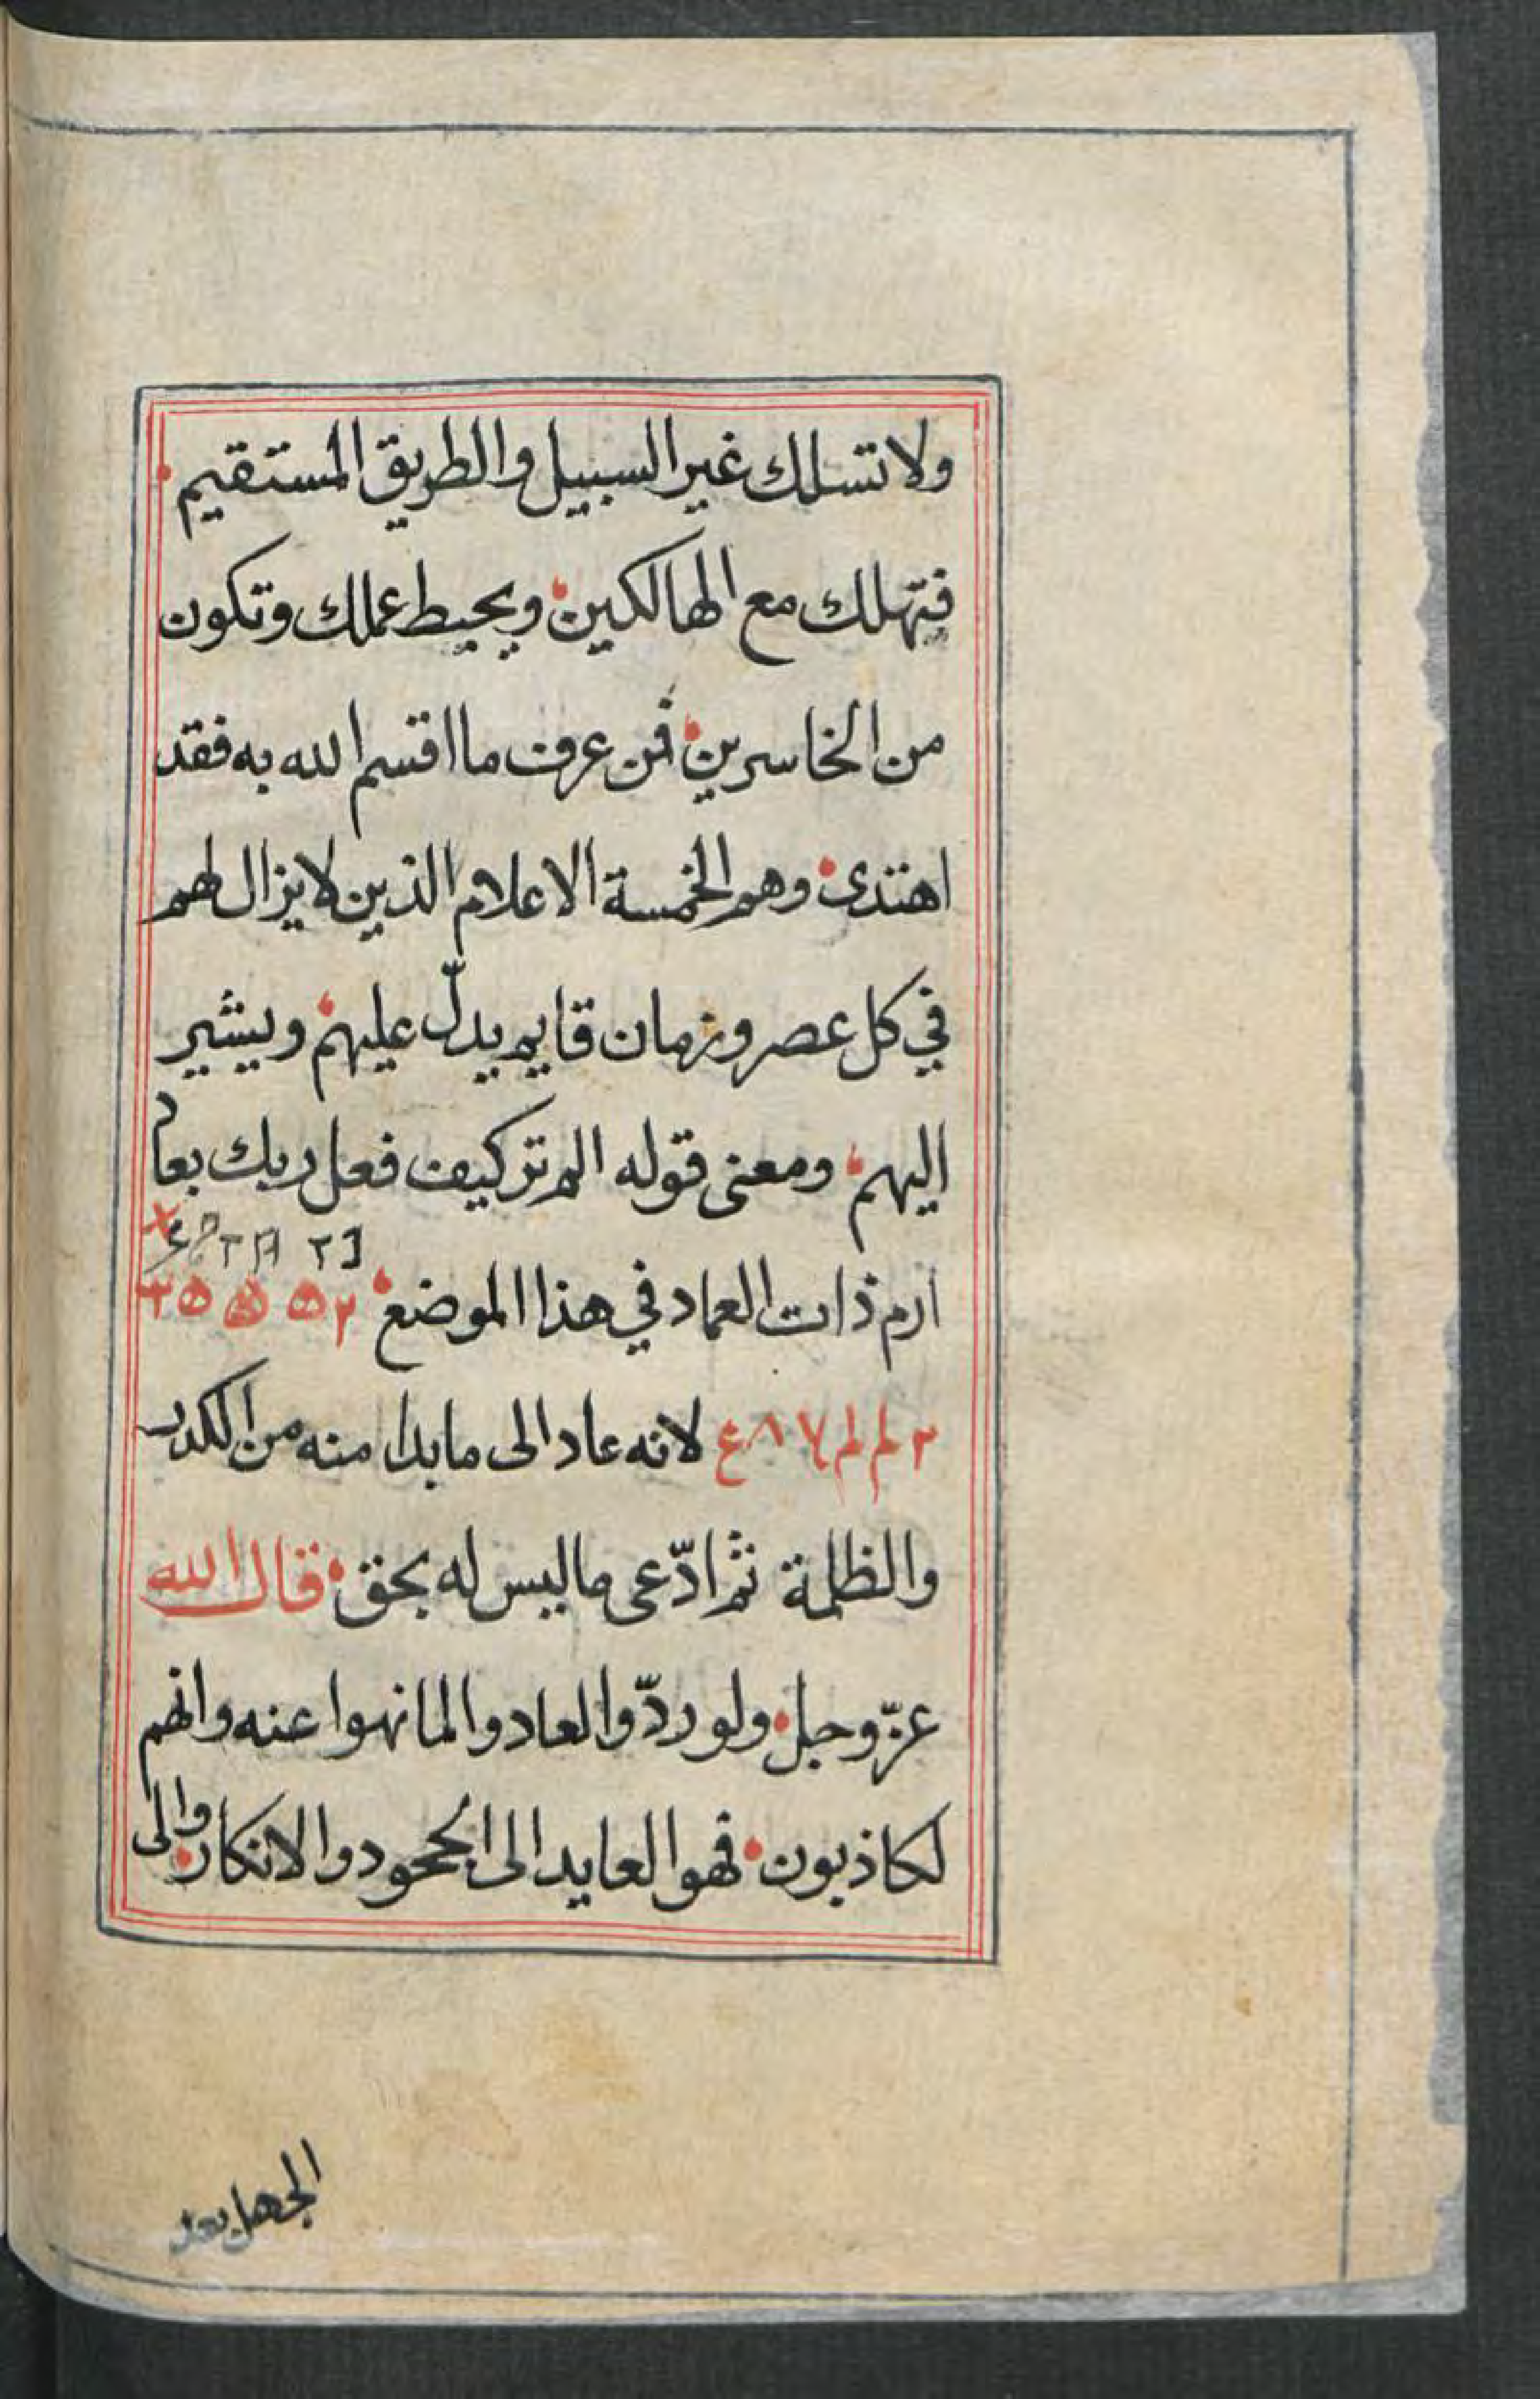 ولا تسلك غير السبيل والطريق المستقيم
فتهلك مع الهالكين ويحيط عملك وتكون
من الخاسرين فمن عرف ما اقسم الله به فقد
اهتدى وهم الخمسة الاعلام الذين لا يزال لهم
في كل عصر وزمان قايم يدلّ عليهم ويشير
اليهم ومعنى قوله الم تر كيف فعل ربك بعاد
ارم ذات العماد في هذا الموضع
لانه عاد الى ما بدا منه من الكدر
والظلمة ثم ادّعى ما ليس له بحق قال الله
عزّ وجل ولو ردّوا لعادوا لما نهوا عنه وانهم
لكاذبون فهو العايد الى الجحود والانكار والى
الجهل بعد